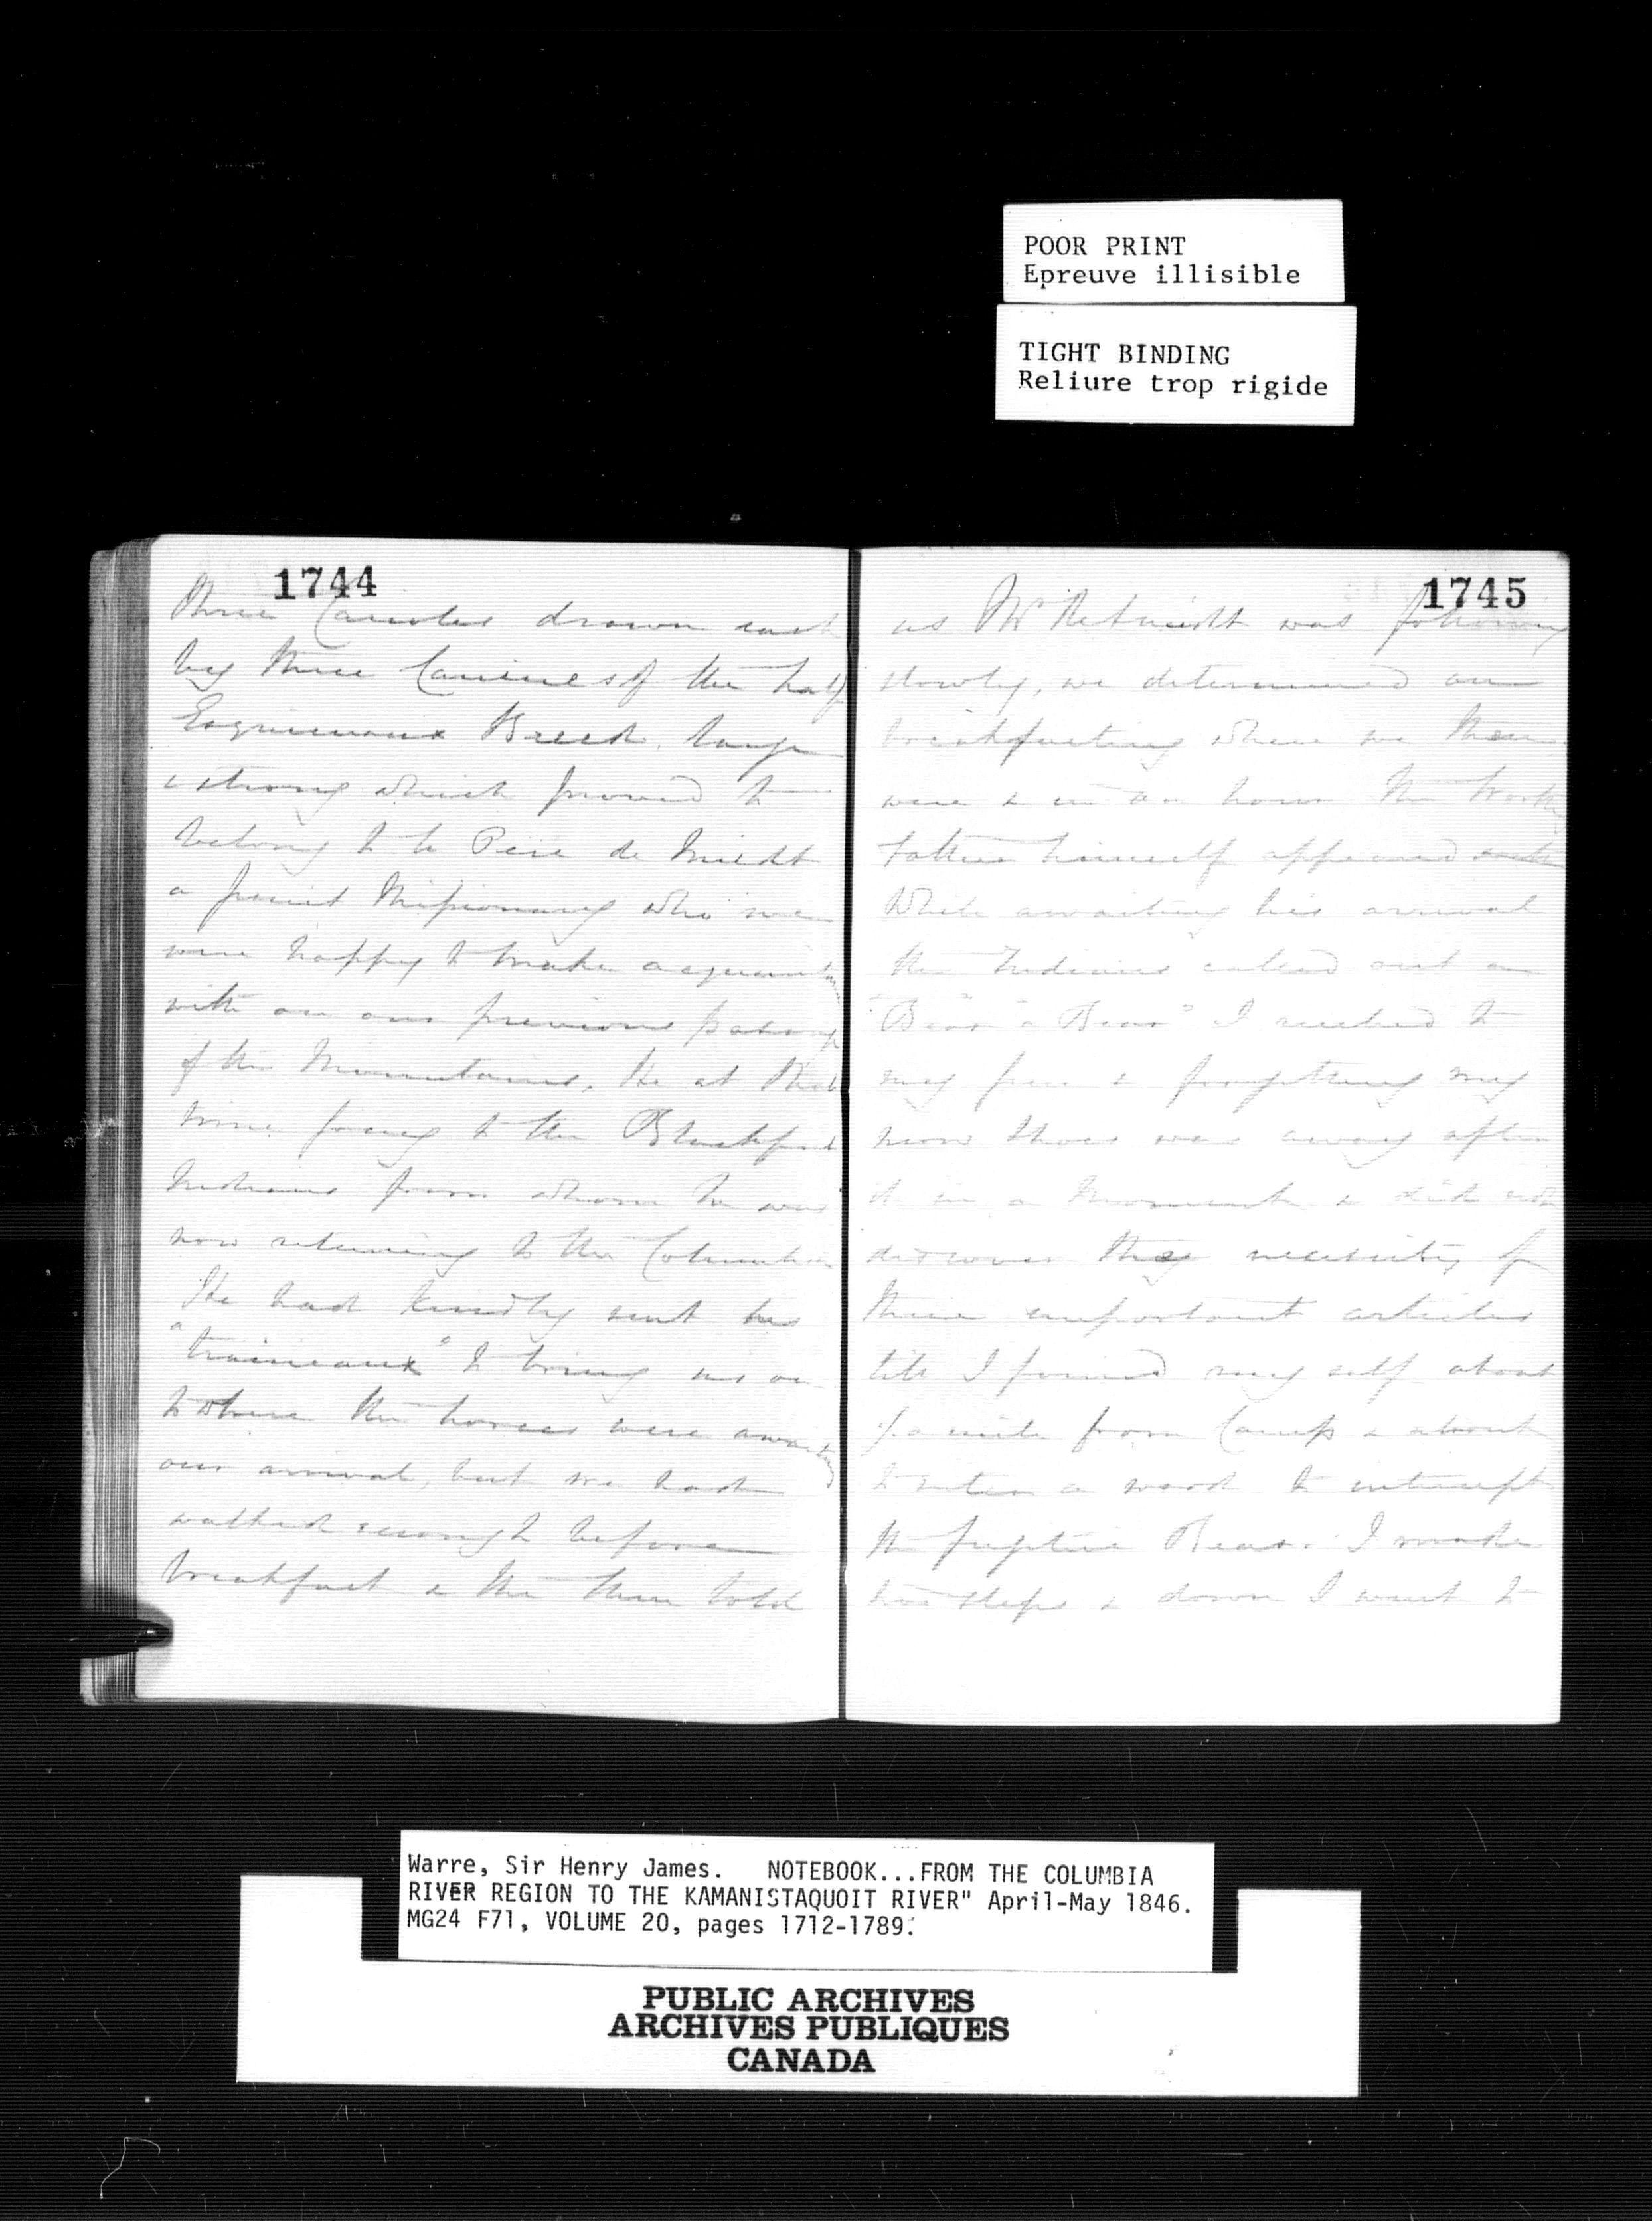 POOR PRINT
Epreuve illisible
TIGHT BINDING
Reliure trop rigide
1744
three Carioles drawn each
by three Canines of the half
Esquimaux Breed, large
& strong which proved to
belong to le Pere de Smidt
a Missionary who we
were happy to make acquaintance
with on our previous passage
of the Mountains, He at that
time going to the Blackfoot
Indians from whom he was
now returning to the Columbia
He had kindly sent his
"traineaux" to bring us on
to where the horses were awaiting
our arrival, but we had
walked enough before
breakfast & the then told
1745
us Mr was following
slowly, we determined on
breakfasting where we then
were & in an hour the Worthy
Father himself appeared
While awaiting his arrival
the Indians called out a
"Bear" "a Bear" I rushed to
my gun & forgetting my
snow shoes was away after
it in a moment & did not
discover the necessity of
these important articles
till I found my self about
a mile from Camp & about
to enter a wood to intercept
the fugitive Bear. I made
two steps & down I went to
Warre, Sir Henry James. NOTEBOOK...FROM THE COLUMBIA
RIVER REGION TO THE KAMANISTAQUOIT RIVER" April-May 1846.
MG24 F71, VOLUME 20, pages 1712-1789.
PUBLIC ARCHIVES
ARCHIVES PUBLIQUES
CANADA